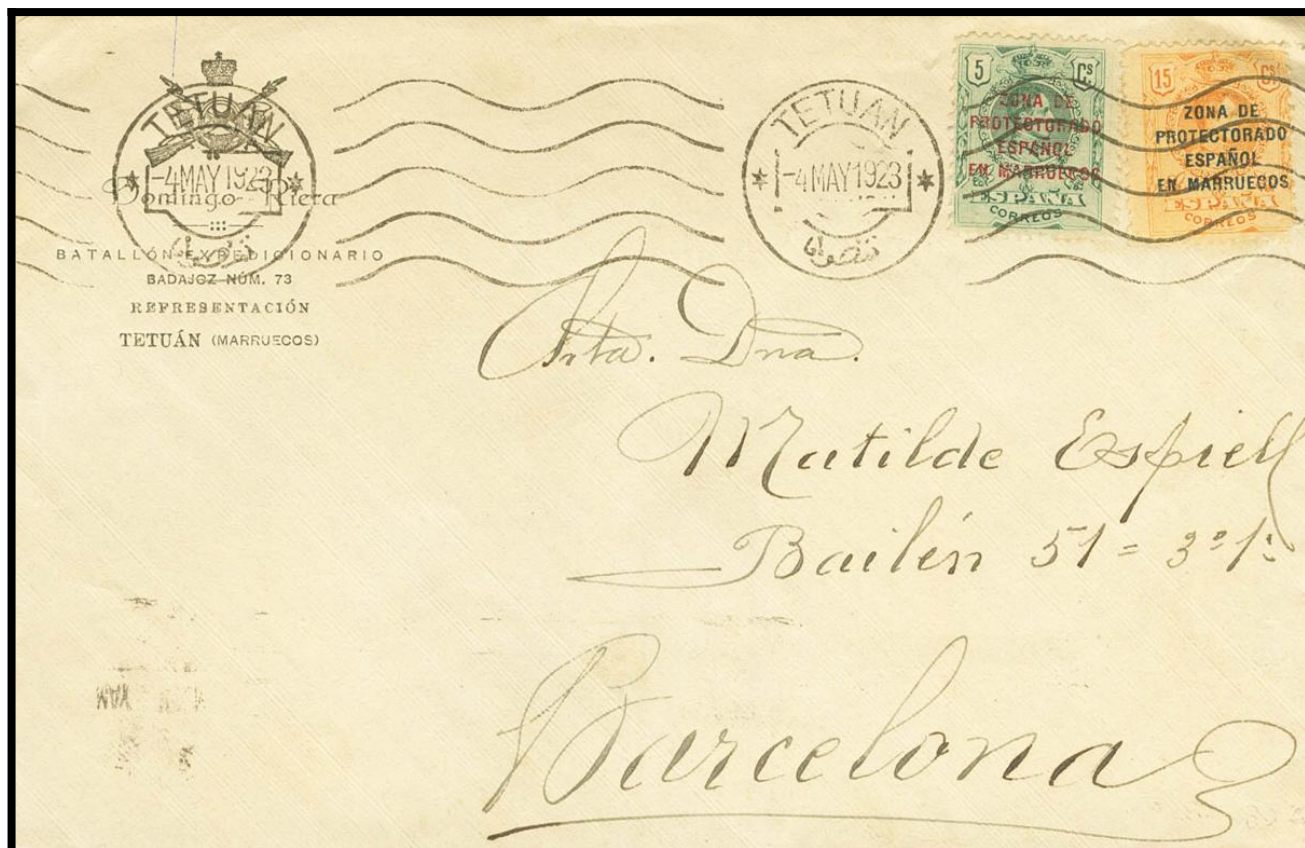 TETUAN
-4 MAY 1923
Domingo Riera
BATALLÓN EXPEDICIONARIO
BADAJOZ NÚM. 73
REPRESENTACIÓN
TETUÁN (MARRUECOS)
TETUAN
-4 MAY 1923
5 Cs
ZONA DE
PROTECTORADO
ESPAÑOL
EN MARRUECOS
ESPAÑA
CORREOS
15 Cs
ZONA DE
PROTECTORADO
ESPAÑOL
EN MARRUECOS
ESPAÑA
CORREOS
Srta. Dna.
Matilde Espiell
Bailén 51 = 3º 1ª
Barcelona